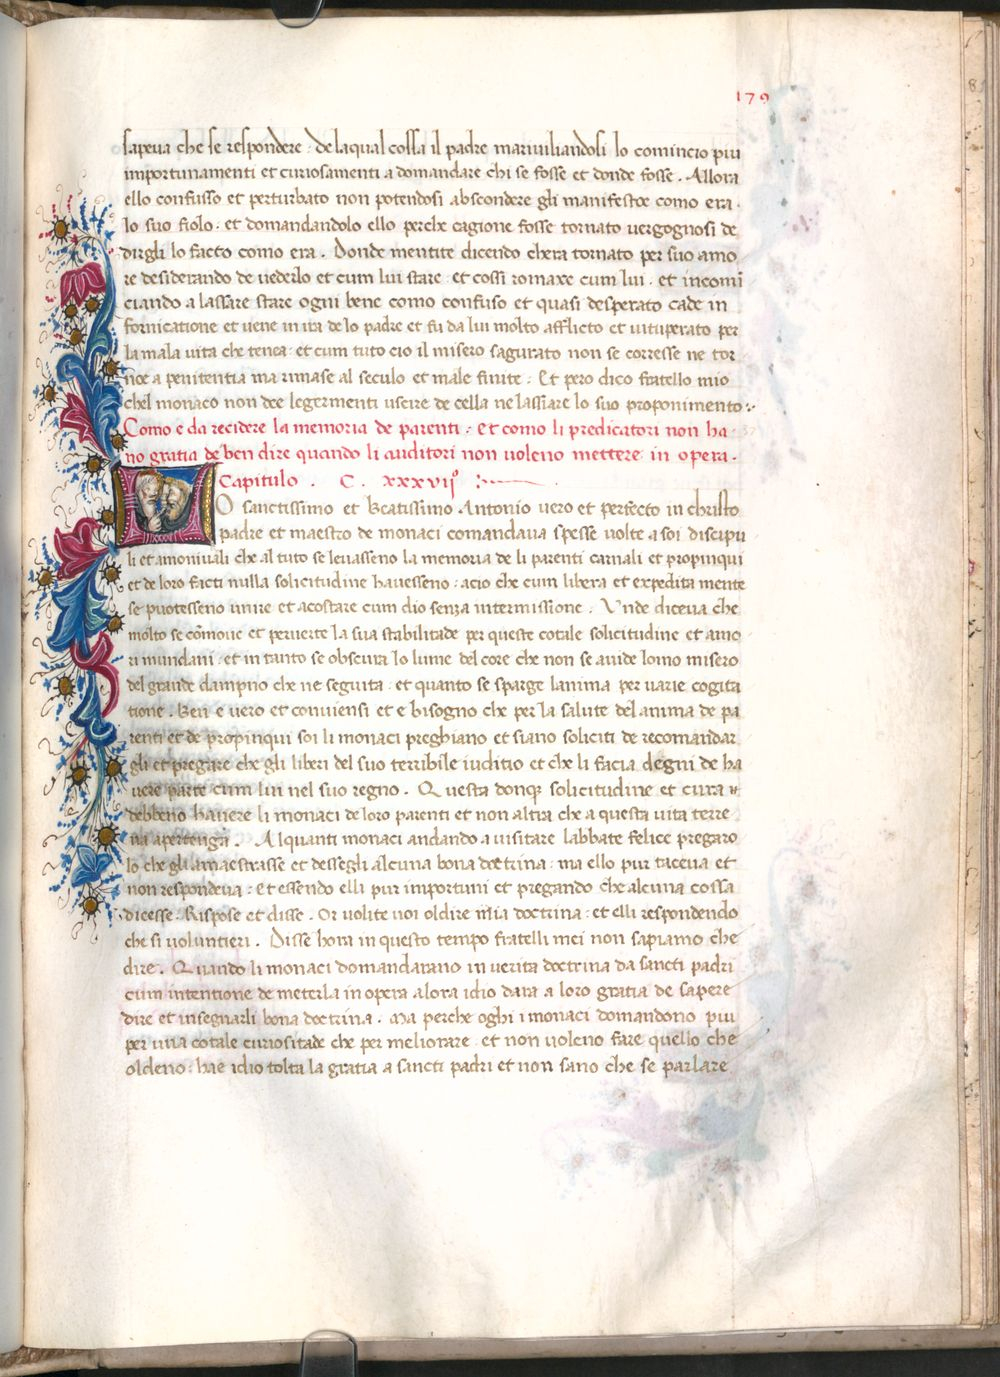 179
sapeua che se respondere · de laqual cossa il padre marauiliandoli lo comincio piu
importunamenti et curiosamenti a domandare chi se fosse et donde fosse . Allora
ello confusso et perturbato non potendosi abscondere gli manifestoe como era ·
lo suo fiolo · et domandandolo ello perche cagione fosse tornato uergognosi de
dirgli lo facto como era . Donde mentite dicendo chera tornato per suo amo
re desiderando de uederlo et cum lui stare · et cossi romaxe cum lui · et incomī
ciando a lassare stare ogni bene como confuso et quasi desperato cade in
fornicatione et uene in ira de lo padre et fu da lui molto afflicto et uituperato per
la mala uita che tenea · et cum tuto cio il misero sagurato non se corresse ne tor
noe a penitentia ma rimase al seculo et male finite : Et pero dico fratello mio
chel monaco non dee legermenti uscire de cella ne lassare lo suo proponimento :·
Como e da recidere la memoria de parenti : et como li predicatori non ha
no gratia de ben dire quando li auditori non uoleno mettere in opera .
Capitulo . C. xxxvijº
O sanctissimo et Beatissimo Antonio uero et perfecto in christo
padre et maestro de monaci comandaua spesse uolte a soi discipu
li et amoniuali che al tuto se leuasseno la memoria de li parenti carnali et propinqui
et de loro facti nulla solicitudine hauesseno : acio che cum libera et expedita mente
se puotesseno unire et acostare cum dio senza intermissione . Vnde diceua che
molto se cōmoue et peruerte la sua stabilitade per queste cotale solicitudine et amo
ri mundani · et in tanto se obscura lo lume del core che non se auide lomo misero
del grande dampno che ne seguita · et quanto se sparge lanima per uarie cogita
tione . Ben e uero et conuiensi et e bisogno che per la salute del anima de pa
renti et de propinqui soi li monaci preghiano et siano soliciti de recomandar
gli et pregare che gli liberi del suo terribile iuditio et che li facia degni de ha
uere parte cum lui nel suo regno . Questa donqȝ solicitudine et cura
debbeno hauere li monaci de loro parenti et non altra che a questa uita terre
na apertenga . Alquanti monaci andando a uisitare labbate felice pregaro
lo che gli amaestrasse et dessegli alcuna bona doctrina : ma ello pur taceua et
non respondeua : et essendo elli pur importuni et pregando che alcuna cossa
dicesse . Rispose et disse . Or uolite uoi oldire mia doctrina : et elli respondendo
che si uoluntieri . Disse hora in questo tempo fratelli mei non sapiamo che
dire . Quando li monaci domandarano in uerita doctrina da sancti padri
cum intentione de meterla in opera alora idio dara a loro gratia de sapere
dire et insegnarli bona doctrina . Ma perche oghi i monaci domandono piu
per una cotale curiositade che per meliorare · et non uoleno fare quello che
oldeno : hae idio tolta la gratia a sancti padri et non sano che se parlare